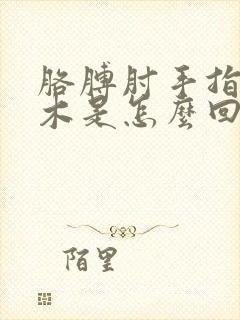 胳膊肘手指
木是怎麼回
陌里